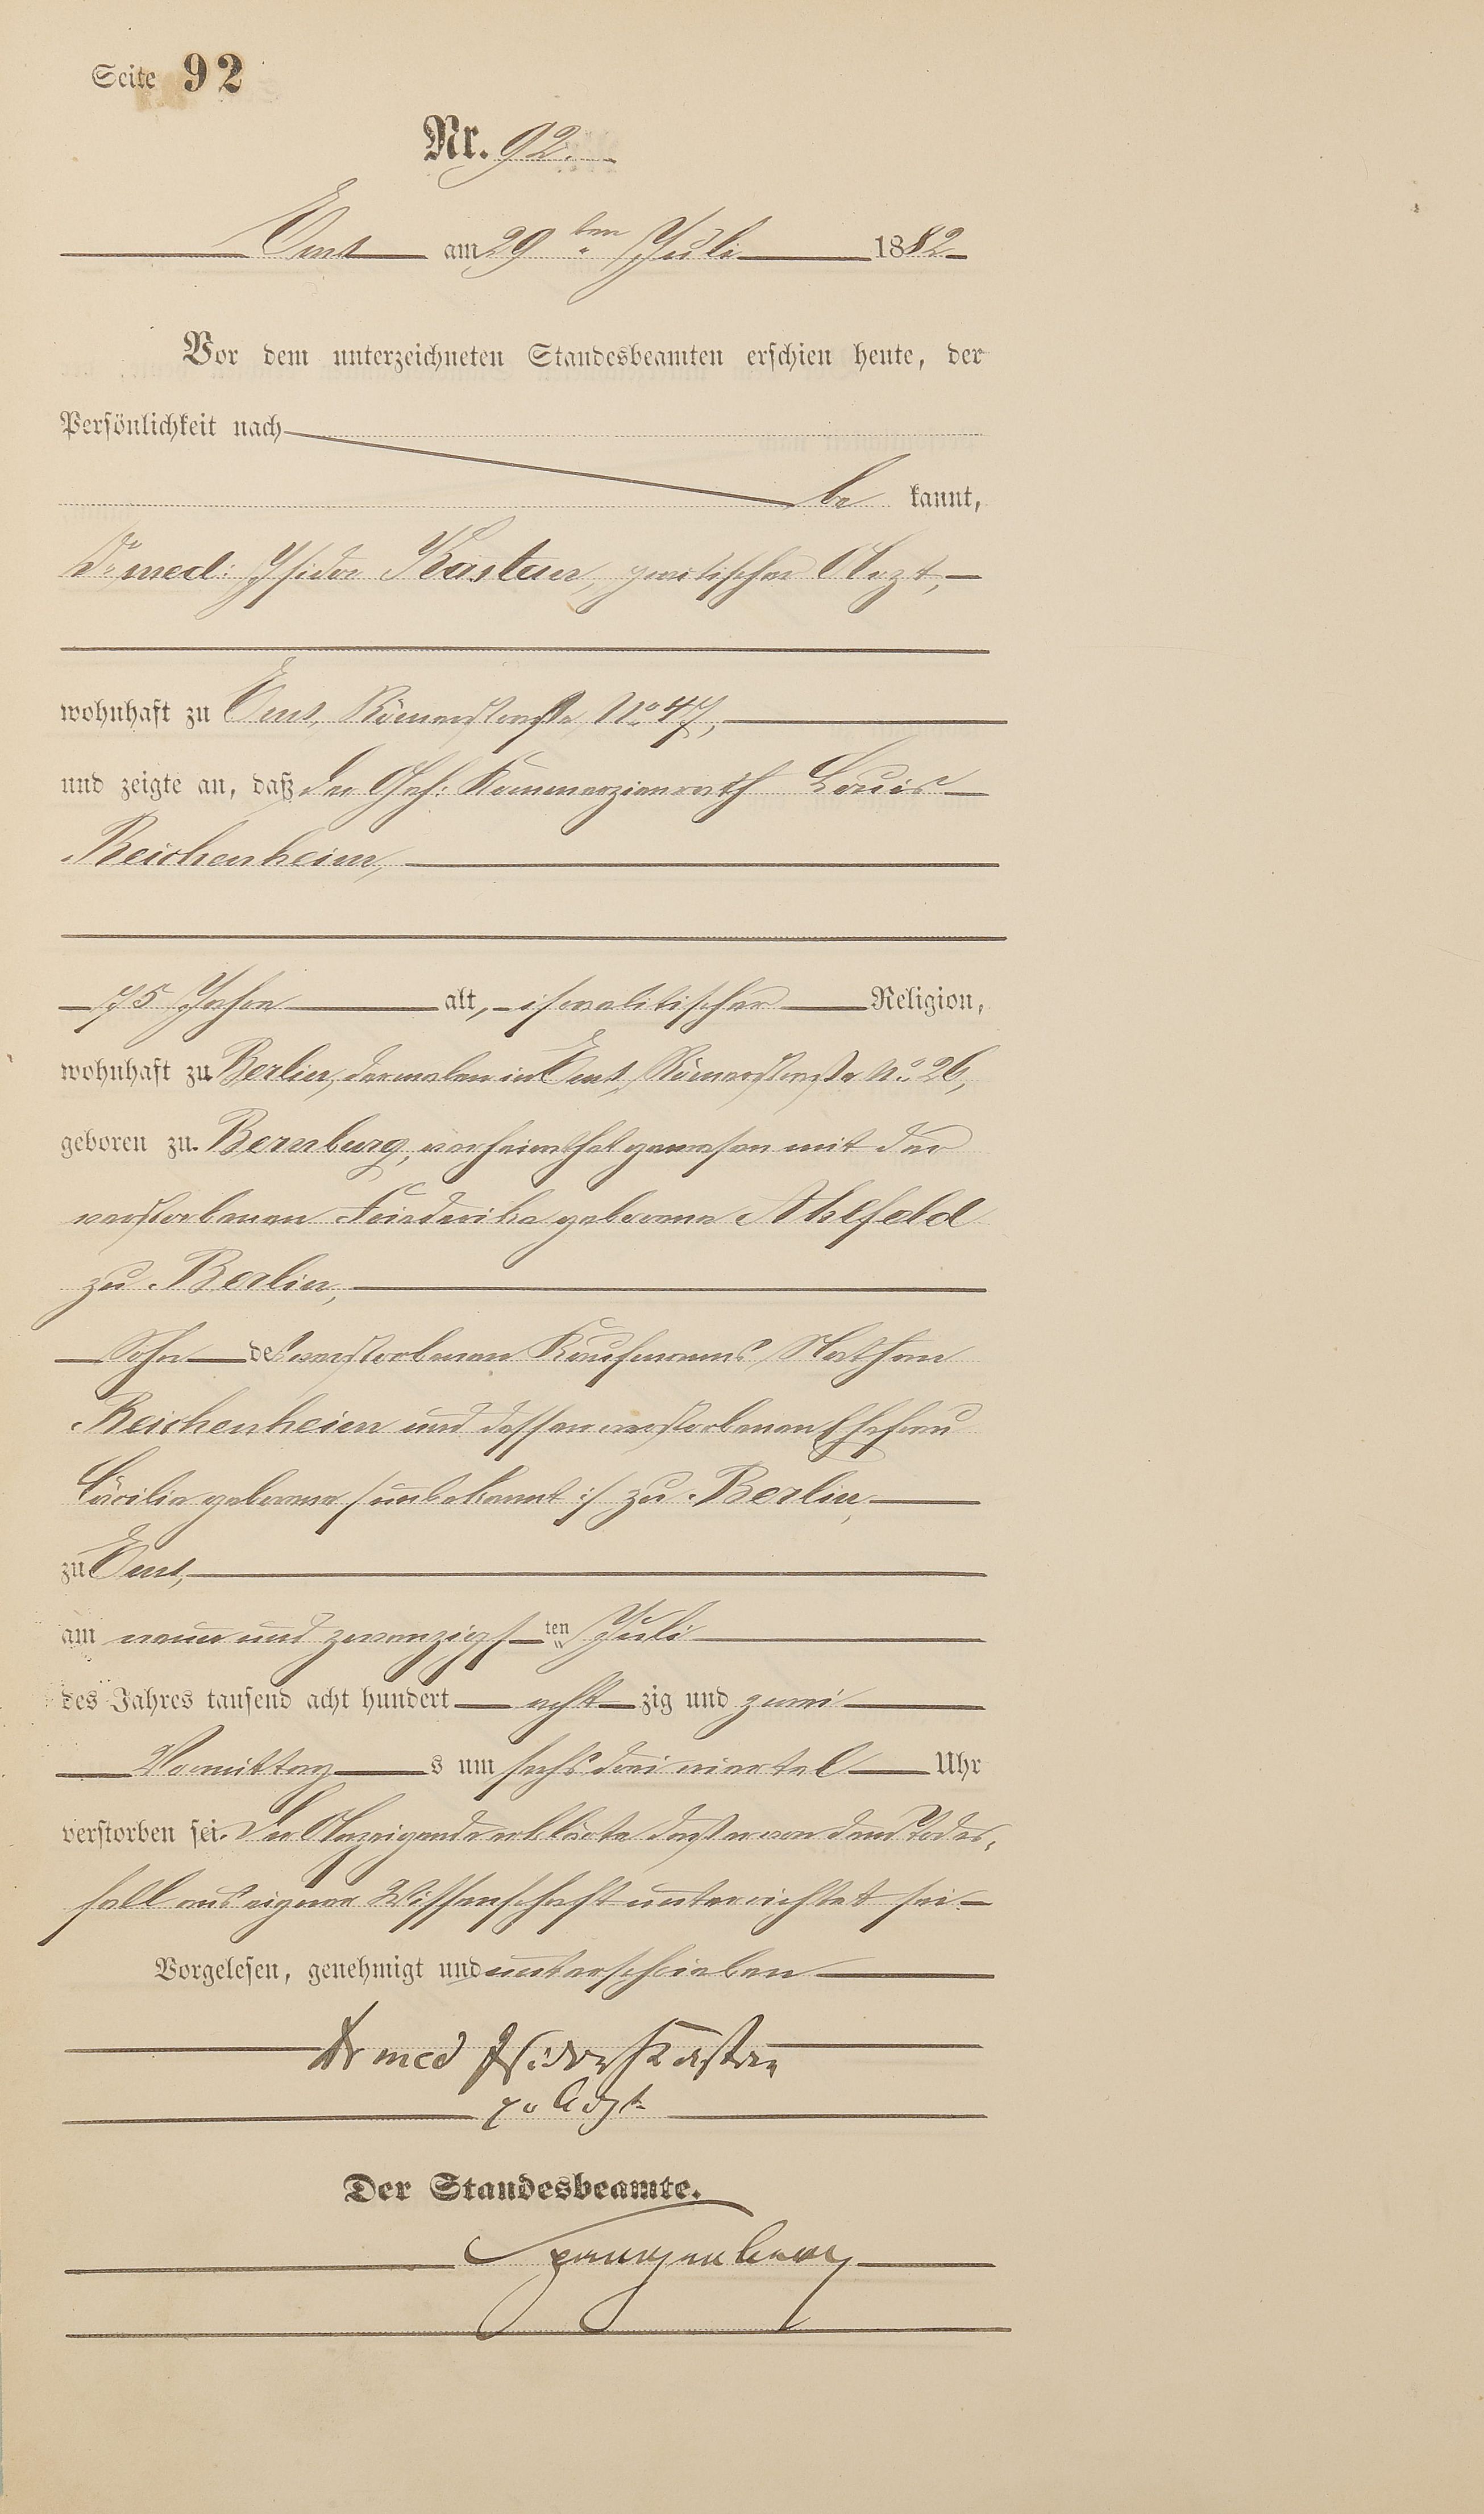 Seite 92
Nr. 92.
Ems am 29ten Juli 1882
Vor dem unterzeichneten Standesbeamten erschien heute, der
Persönlichkeit nach
be kannt,
Dr med: Isidor Kastan, practischer Arzt,
wohnhaft zu Ems, Römerstraße No 47,
und zeigte an, daß der Geh: Kommerzienrath Louis
Reichenheim,
75 Jahre alt, israelitischer Religion,
wohnhaft zu Berlin, dermalen in Ems, Römerstraße No 26,
geboren zu Bernburg, verheirathet gewesen mit der
verstorbenen Friederike geborene Ahlfeld
zu Berlin,
Sohn des verstorbenen Kaufmanns Nathan
Reichenheim und dessen verstorbenen Ehefrau
Cäcilie geborene /:unbekannt:/ zu Berlin,
zu Ems,
am neun und zwanzigsten Juli
des Jahres tausend acht hundert acht zig und zwei
Vormittag s um sechs drei viertel Uhr
verstorben sei. Der Anzeigende erklärte daß er von dem Todes-
fall aus eigener Wissenschaft unterrichtet sei
Vorgelesen, genehmigt und unterschrieben
Dr med Isidor Kastan
pr Arzt
Der Standesbeamte.